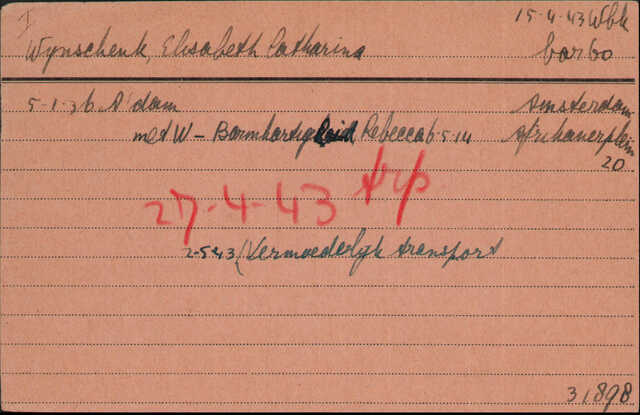 I
15-4-43 Wbk
Wynschenk, Elisabeth Catharina
barbo
5-1-36 A'dam
Amsterdam
met W- Barmhartigheid, Rebecca 6-5-14
Afrikanerplein
20
27-4-43 trp
2-5-43 (Vermoedelyk transport
31898